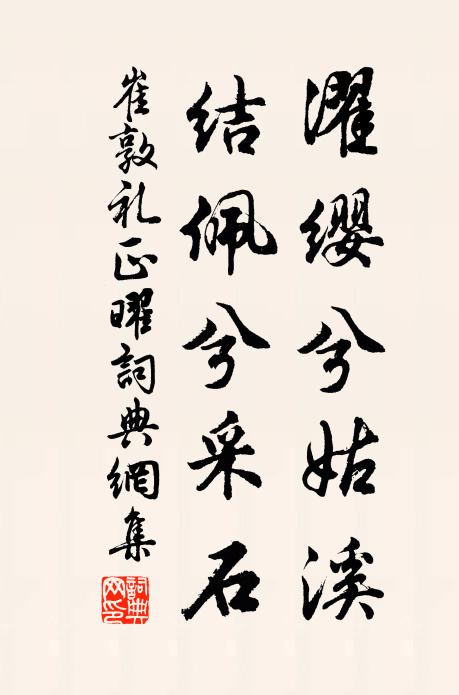 濯缨兮姑溪
结佩兮采石
崔敦礼正曜詞典網集
詞典网印